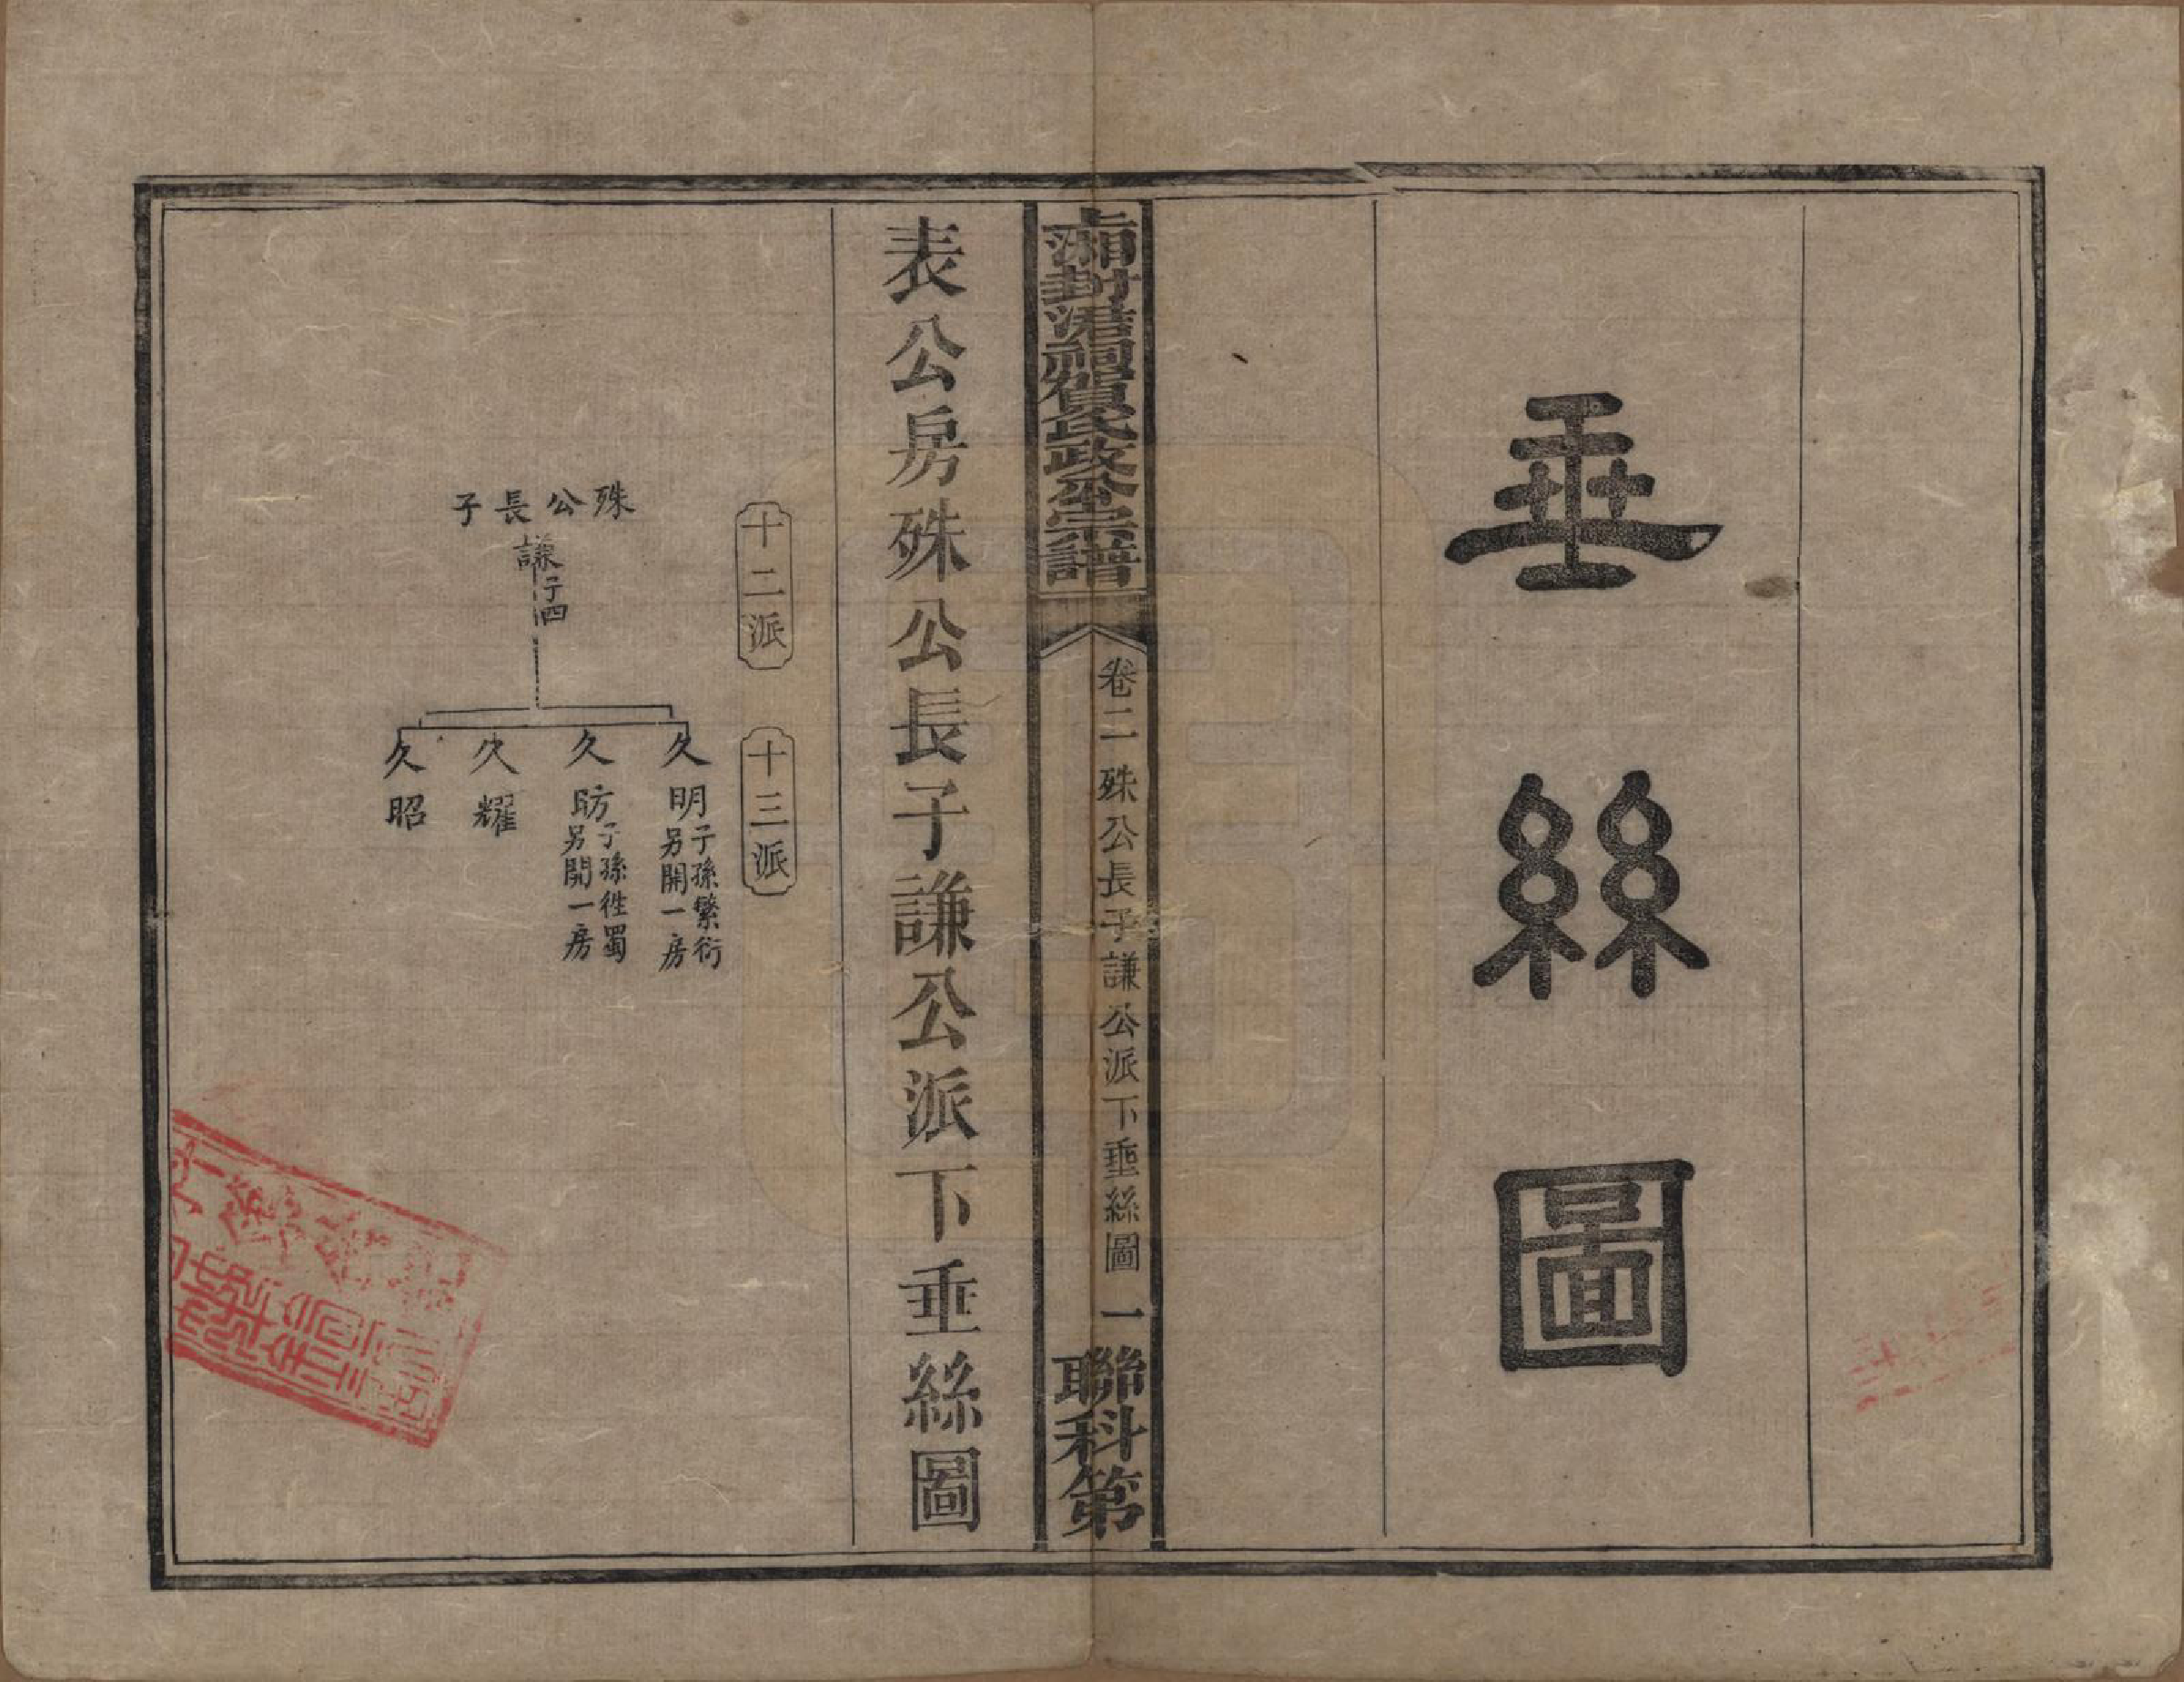 垂絲圖
上湘封漣禤賀氏政公宗譜
卷二　殊公長子謙公派下垂絲圖　一
聯科第
表公房殊公長子謙公派下垂絲圖
十二派
十三派
殊公長子
謙子四
久明子孫繁衍另開一房
久昉子孫徃蜀另開一房
久耀
久昭